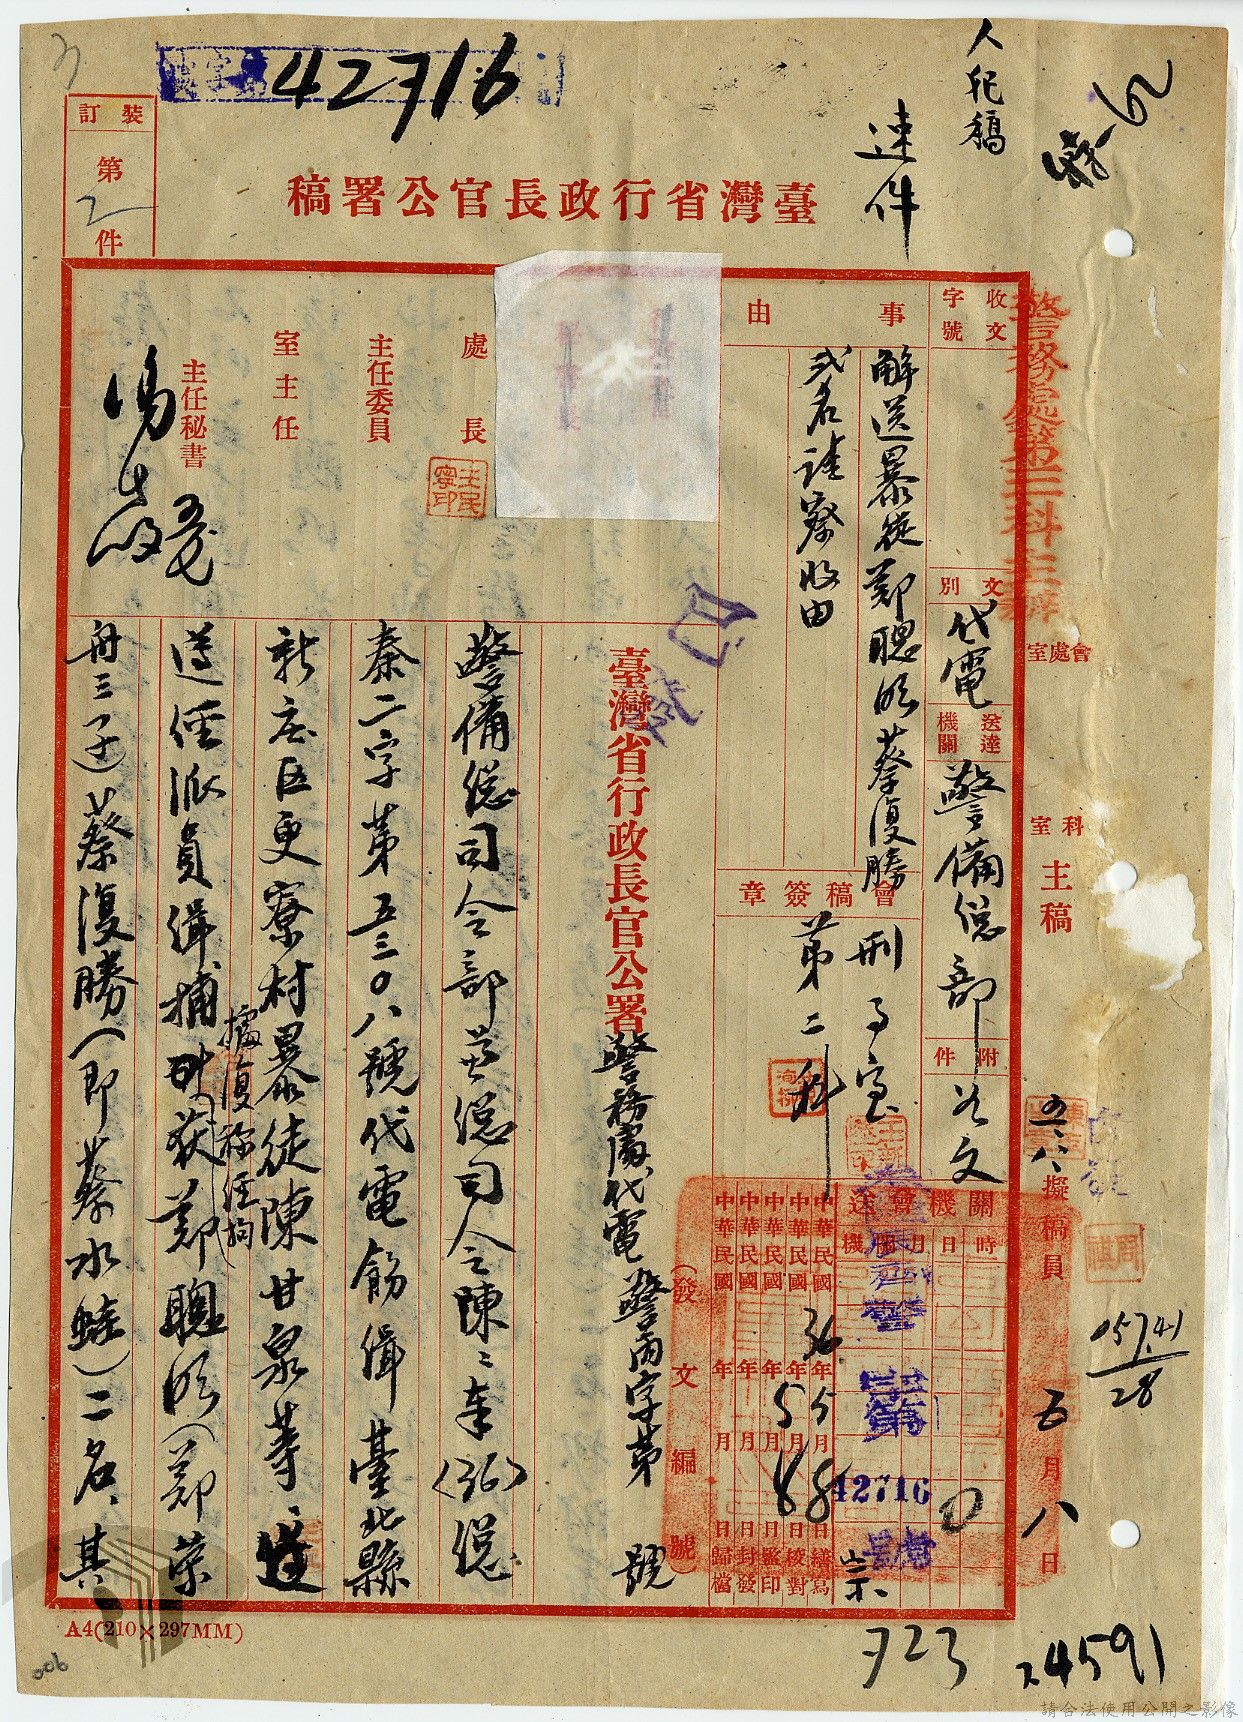 42716
人犯稿
速件
裝訂
第2件
臺灣省行政長官公署稿
警務處第三科主辦
收文字號
文別
代電
送達機關
警備總部
附件
公文
事由
解送暴徒鄭聰明蔡復勝
弍名請察收由
會稿簽章
刑事室
第二科
處長
王民寧印
主任委員
室主任
主任秘書
會處室
科室
主稿
擬稿員
五月八日
機關會送
時日月
中華民國36年5月8日繕寫
中華民國年5月8日校對
中華民國年月日監印
中華民國年月日封發
中華民國年月日歸檔
42716
已發
(發文編號)
臺灣省行政長官公署警務處代電 警丙字第 號
警備總司令部兼總司令陳:奉(36)總
秦二字第五三〇八號代電飭緝臺北縣
新庄區更寮村暴徒陳甘泉等、遵
遵經派員緝捕據復稱經拘獲鄭聰明(鄭榮
舟三子)蔡復勝(即蔡水蛙)二名、其
A4(210×297MM)
006
05741
28
723
24591
請合法使用公開之影像